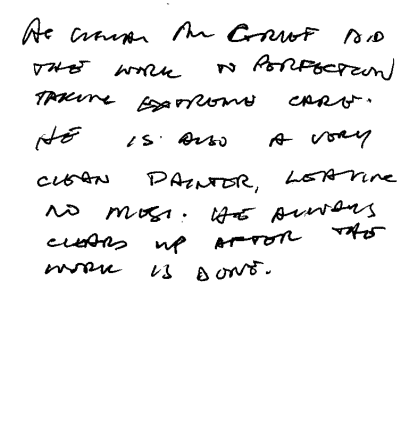 As usual Mr Grief did
the work to perfection
taking extreme care.
He is also a very
clean painter, leaving
no mess. He always
clears up after the
work is done.